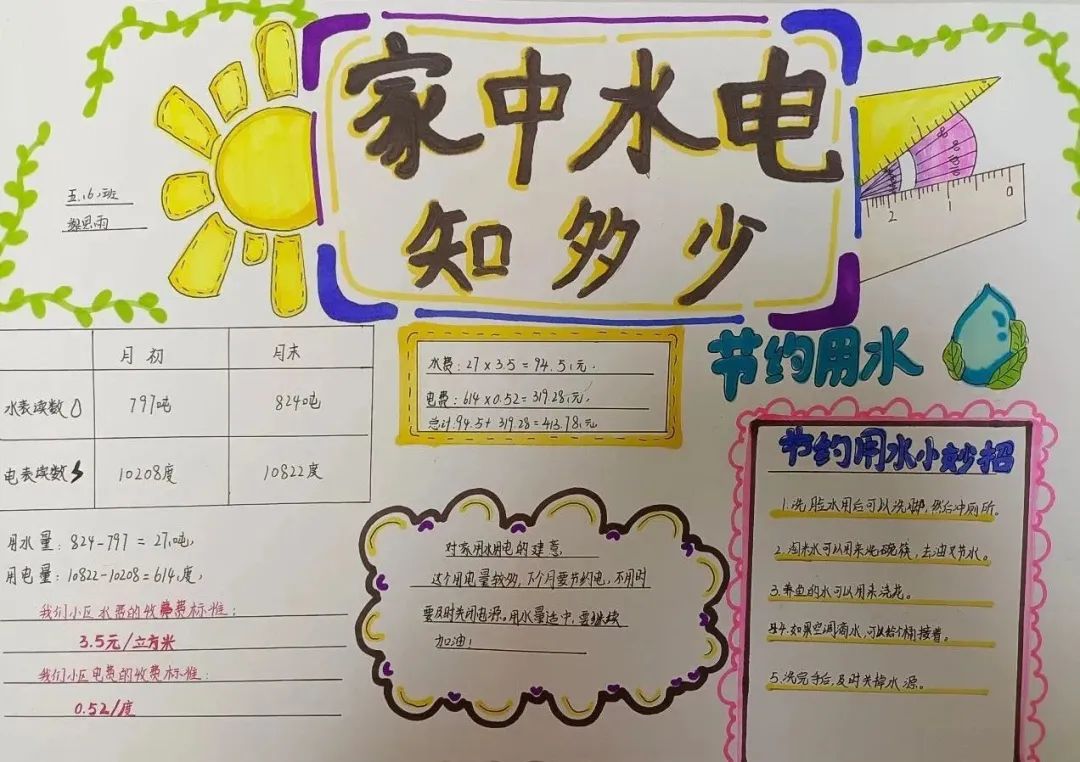 家中水电
知多少
五(6)班
月初 月末
水表读数 797吨 824吨
电表读数 10208度 10822度
用水量：824-797=27(吨)
用电量：10822-10208=614(度)
我们小区水费的收费标准：
3.5元/立方米
我们小区电费的收费标准：
0.52/度
水费：27×3.5=94.5(元)
电费：614×0.52=319.28(元)
总计：94.5+319.28=413.78(元)
对家用水用电的建意
这个用电量较多，下个月要节约电，不用时
要及时关闭电源。用水量适中，要继续
加油！
节约用水
节约用水小妙招
1.洗脸水用后可以洗脚，然后冲厕所。
2.淘米水可以用来洗碗筷，去油又节水。
3.养鱼的水可以用来浇花。
4.如果空调滴水，可以给个桶接着。
5.洗完手后，及时关掉水源。
2 1 0
2 1